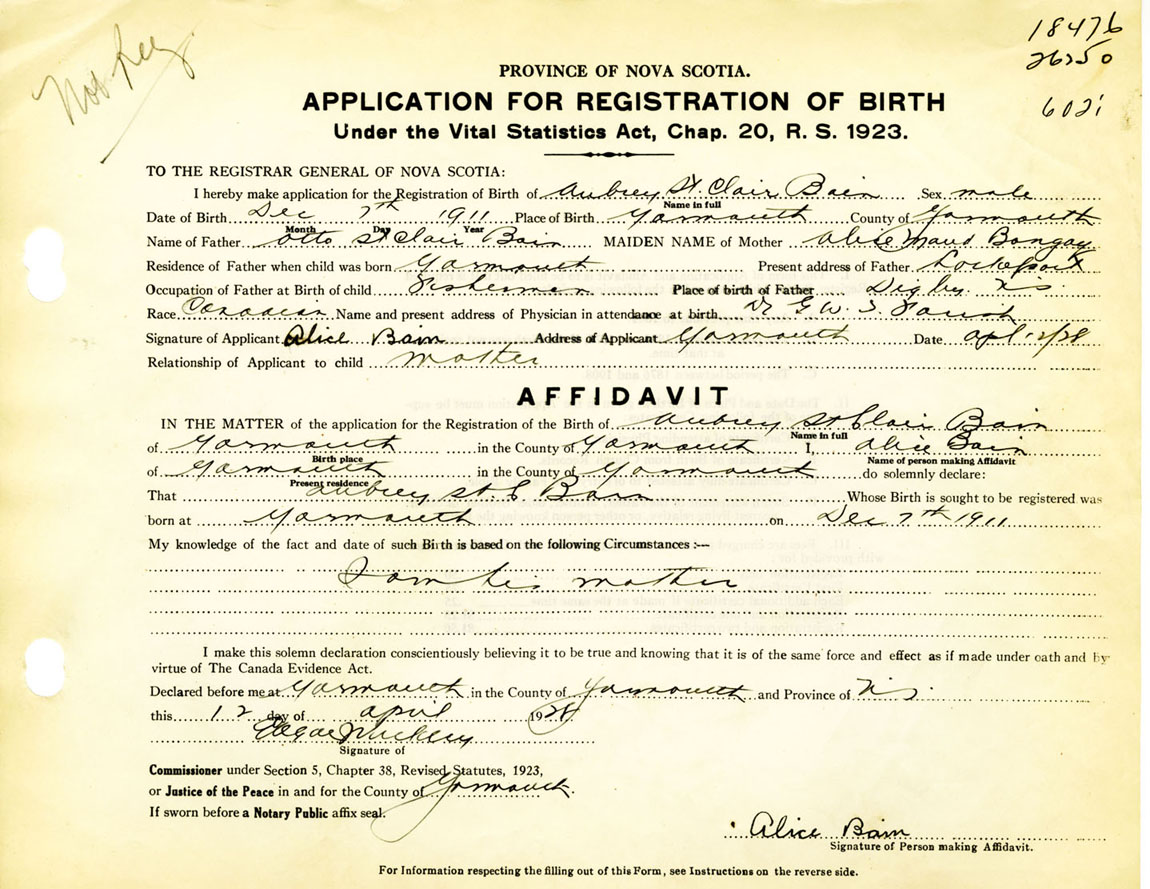 18476
26250
6021
Not Reg
PROVINCE OF NOVA SCOTIA.
APPLICATION FOR REGISTRATION OF BIRTH
Under the Vital Statistics Act, Chap. 20, R. S. 1923.
TO THE REGISTRAR GENERAL OF NOVA SCOTIA:
I hereby make application for the Registration of Birth of Aubrey St. Clair Bain Sex male
Name in full
Date of Birth Dec 7th 1911 Place of Birth Yarmouth County of Yarmouth
Month Day Year
Name of Father Otto St Clair Bain MAIDEN NAME of Mother Alice Maud Bongay
Residence of Father when child was born Yarmouth Present address of Father Lockeport
Occupation of Father at Birth of child Fisherman Place of birth of Father Digby NS
Race Canadian Name and present address of Physician in attendance at birth. Dr G. W. T. Farish
Signature of Applicant Alice Bain Address of Applicant Yarmouth Date Apl. 12/28
Relationship of Applicant to child mother
AFFIDAVIT
IN THE MATTER of the application for the Registration of the Birth of Aubrey St Clair Bain
Name in full
of Yarmouth in the County of Yarmouth I, Alice Bain
Birth place Name of person making Affidavit
of Yarmouth in the County of Yarmouth do solemnly declare:
Present residence
That Aubrey St. C Bain Whose Birth is sought to be registered was
born at Yarmouth on Dec 7th 1911
My knowledge of the fact and date of such Birth is based on the following Circumstances :—
I am his mother
I make this solemn declaration conscientiously believing it to be true and knowing that it is of the same force and effect as if made under oath and by
virtue of The Canada Evidence Act.
Declared before me at Yarmouth in the County of Yarmouth and Province of N S.
this 12 day of April 1928
Signature of
Commissioner under Section 5, Chapter 38, Revised Statutes, 1923,
or Justice of the Peace in and for the County of Yarmouth.
If sworn before a Notary Public affix seal.
Alice Bain
Signature of Person making Affidavit.
For Information respecting the filling out of this Form, see Instructions on the reverse side.